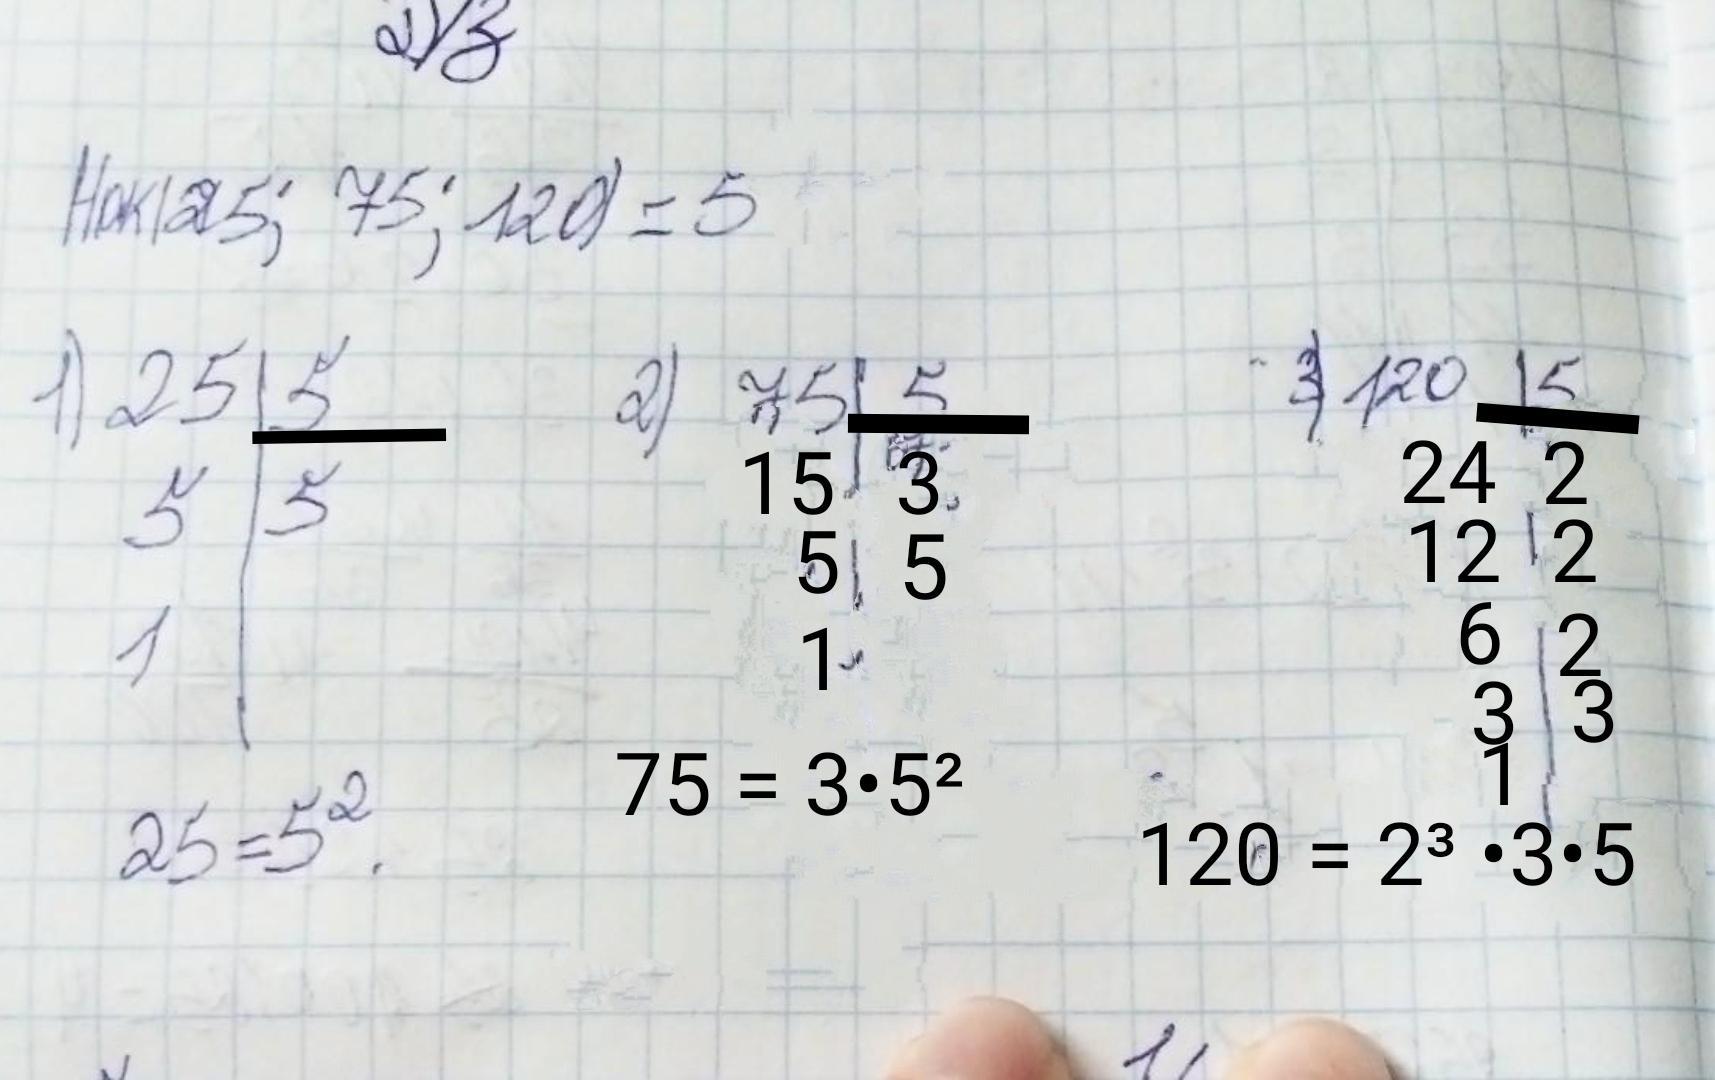 Нок(25; 75; 120) = 5
1) 25 | 5
5 | 5
1
25 = 5².
2) 75 | 5
15 | 3
5 | 5
1
75 = 3•5²
3) 120 | 5
24 | 2
12 | 2
6 | 2
3 | 3
1
120 = 2³ •3•5